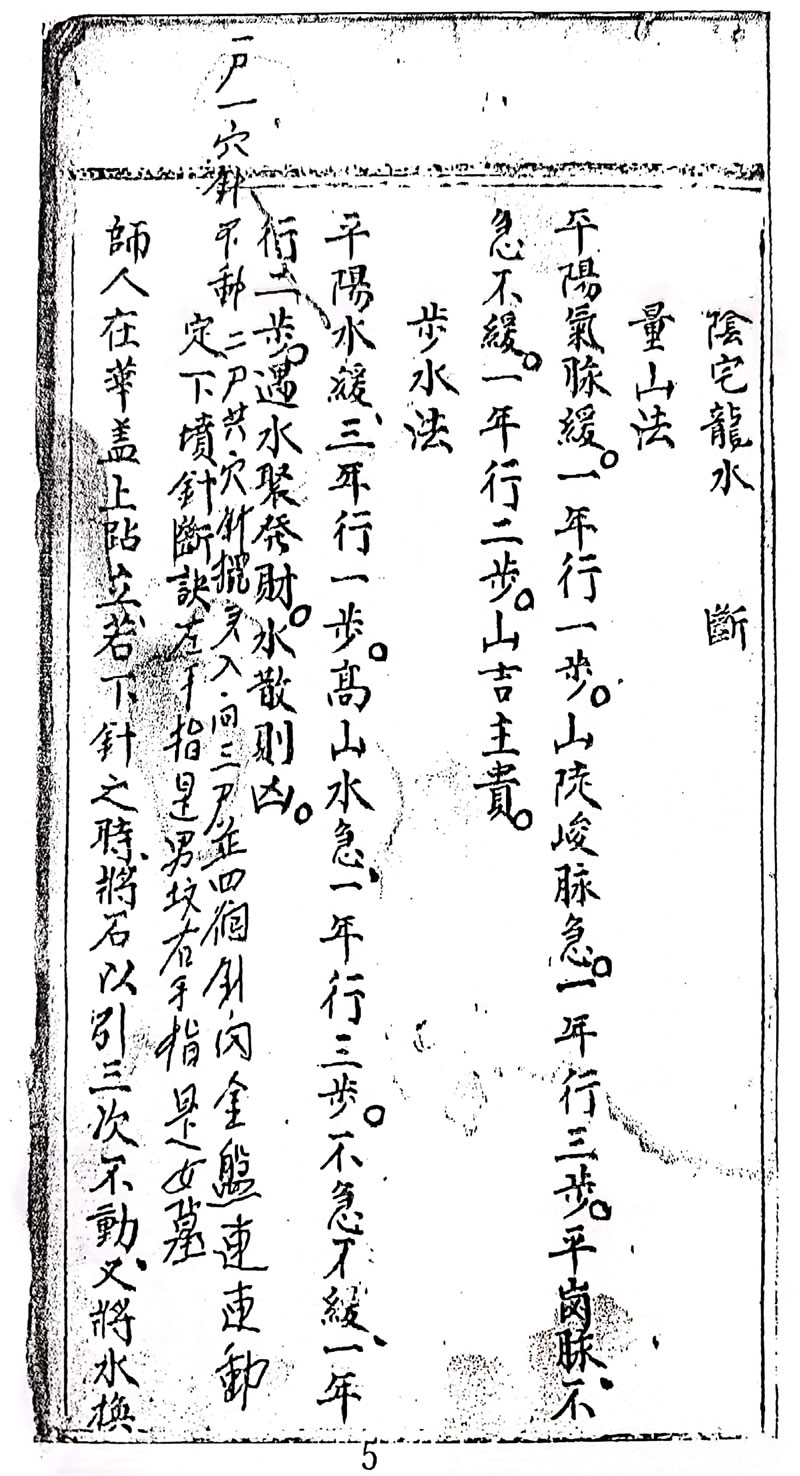 陰宅龍水　斷
量山法
平陽氣脉緩。一年行一步。山陡峻脉急。一年行三步。平崗脉、不
急不緩。一年行二步。山吉主貴。
步水法
平陽水緩、三年行一步。高山水急、一年行三步。不急不緩、一年
行二步。遇水聚發財。水散則凶。
一尸一穴針不動 二尸共穴針擺 入向三尸並四個針向金盤連連動
定下墳針斷訣左手指是男坟右手指是女墓
師人在華盖上跕立、若下針之時、將石以引三次不動、又將水換
5